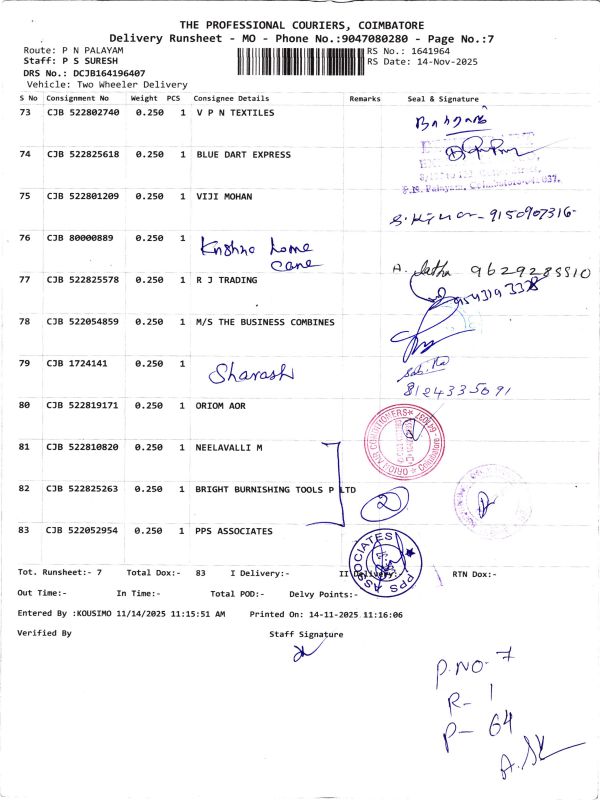 THE PROFESSIONAL COURIERS, COIMBATORE
Delivery Runsheet - MO - Phone No.:9047080280 - Page No.:7
Route: P N PALAYAM RS No.: 1641964
Staff: P S SURESH RS Date: 14-Nov-2025
DRS No.: DCJB164196407
Vehicle: Two Wheeler Delivery
S No Consignment No Weight PCS Consignee Details Remarks Seal & Signature
73 CJB 522802740 0.250 1 V P N TEXTILES
74 CJB 522825618 0.250 1 BLUE DART EXPRESS
P.N. Palayam, Coimbatore-641 037.
75 CJB 522801209 0.250 1 VIJI MOHAN
9150907316
76 CJB 80000889 0.250 1 Krishna home
cane
A. Latha 9629285510
77 CJB 522825578 0.250 1 R J TRADING
78 CJB 522054859 0.250 1 M/S THE BUSINESS COMBINES
79 CJB 1724141 0.250 1 Sharash
8124335091
80 CJB 522819171 0.250 1 ORIOM AOR
81 CJB 522810820 0.250 1 NEELAVALLI M
82 CJB 522825263 0.250 1 BRIGHT BURNISHING TOOLS P LTD
2
83 CJB 522052954 0.250 1 PPS ASSOCIATES
PPS ASSOCIATES
Tot. Runsheet:- 7 Total Dox:- 83 I Delivery:- II Delivery:- RTN Dox:-
Out Time:- In Time:- Total POD:- Delvy Points:-
Entered By :KOUSIMO 11/14/2025 11:15:51 AM Printed On: 14-11-2025 11:16:06
Verified By Staff Signature
P.NO- 7
R- 1
P- 64